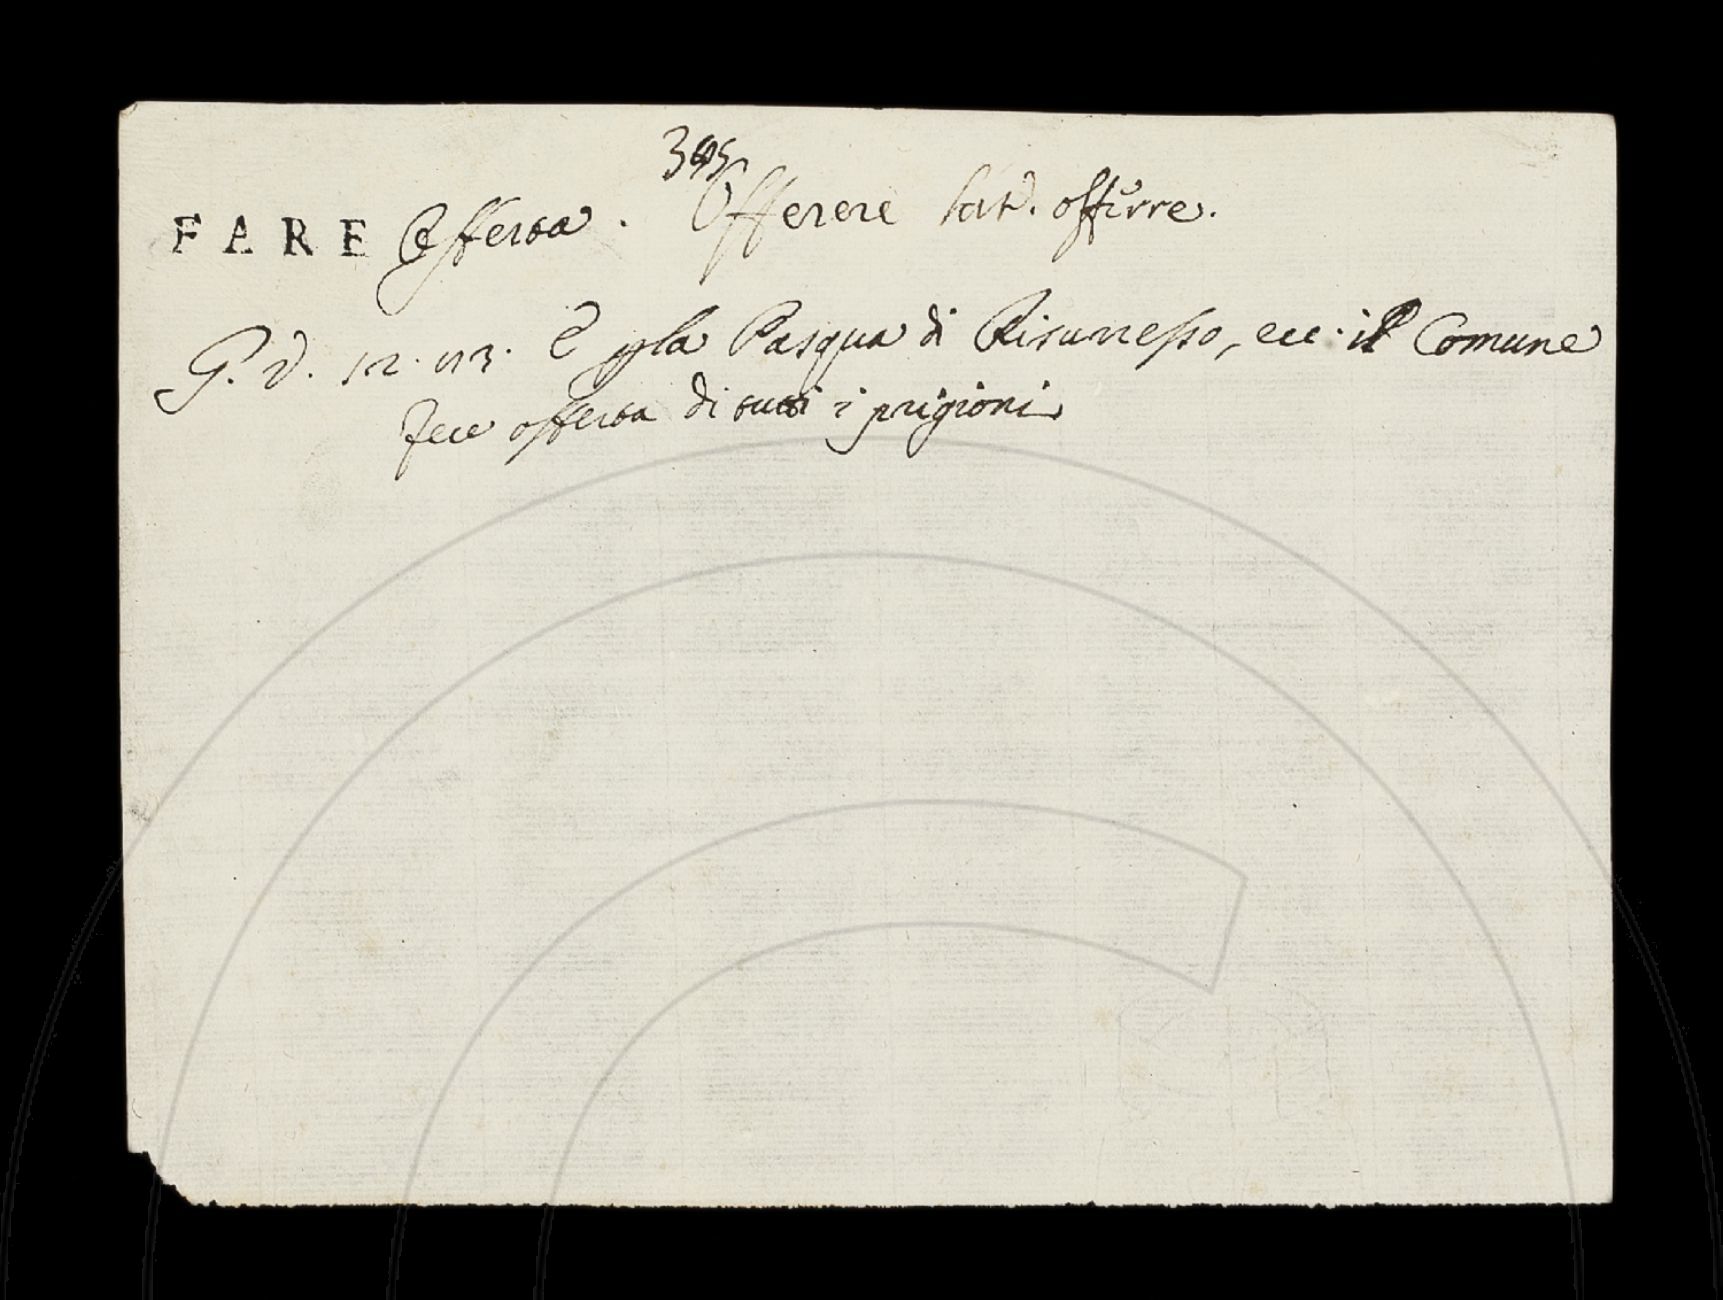 395
FARE Offerta. Offerere lat. offrirre.
G. V. 12. 113. E p la Pasqua di Risurresso, ecc. il Comune
fece offerta di tutti i prigioni